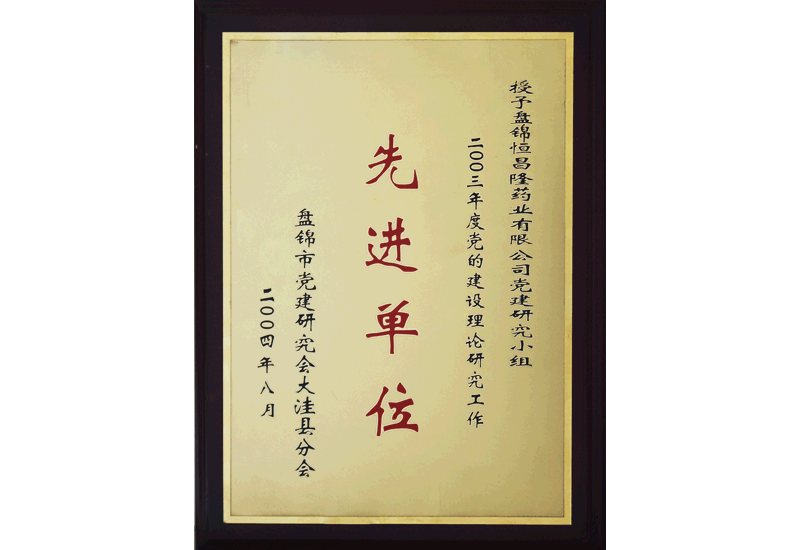 授予盘锦恒昌隆药业有限公司党建研究小组
二〇〇三年度党的建设理论研究工作
先进单位
盘锦市党建研究会大洼县分会
二〇〇四年八月